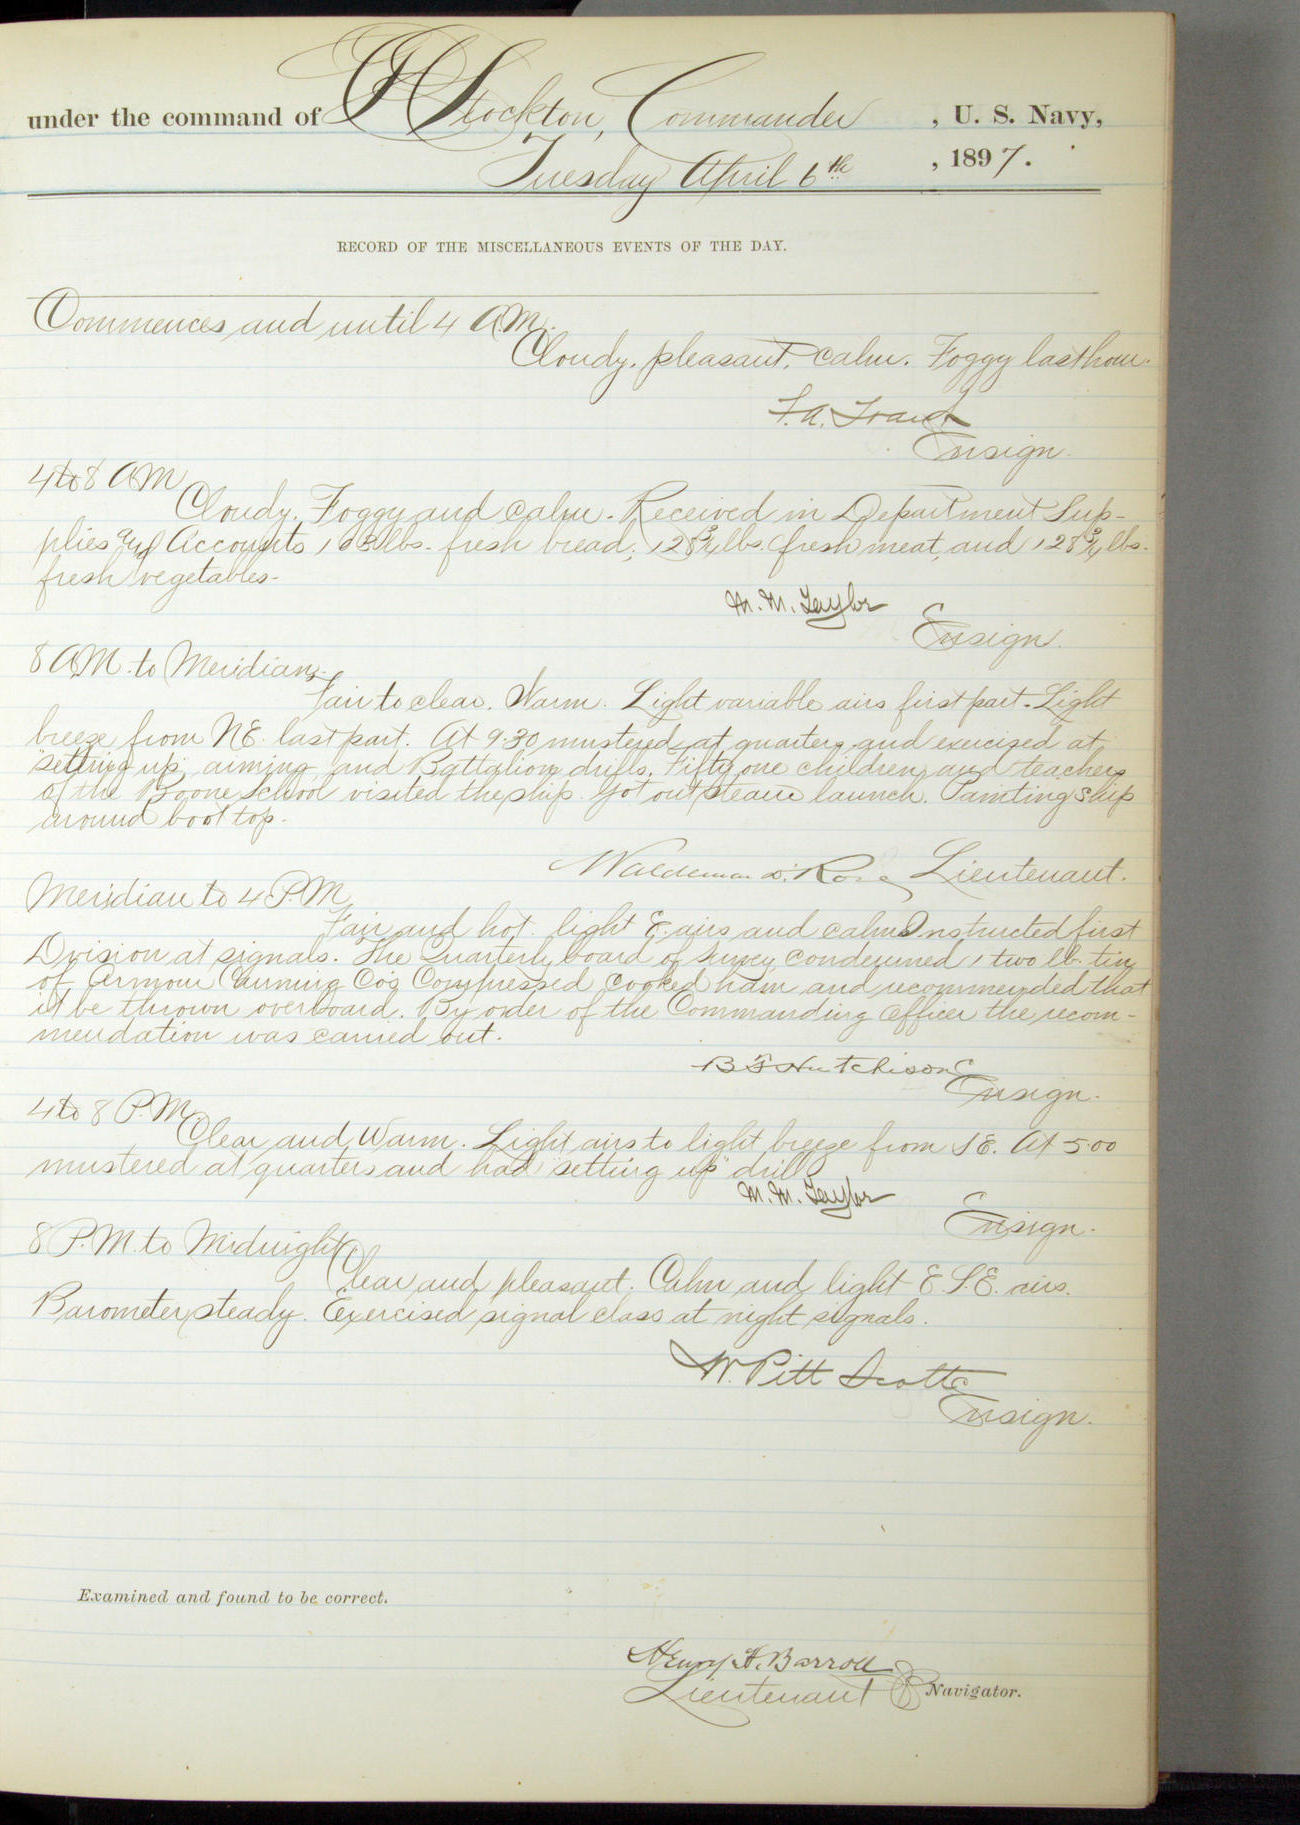 under the command of C H Stockton, Commander , U. S. Navy,
Tuesday April 6th , 1897.
RECORD OF THE MISCELLANEOUS EVENTS OF THE DAY.
Commences and until 4 A.M.
Cloudy, pleasant, calm. Foggy last hour.
F. A. Traut
Ensign.
4 to 8 AM
Cloudy, Foggy and calm. Received in Department Sup-
plies and Accounts 103 lbs. fresh bread, 128 3/4 lbs. fresh meat, and 128 3/4 lbs.
fresh vegetables.
M. M. Taylor
Ensign.
8 AM. to Meridian.
Fair to clear. Warm. Light variable airs first part. Light
breeze from NE. last part. At 9.30 mustered at quarters and exercised at
"setting up", aiming, and Battalion drills. Fifty one children and teachers
of the Boone School visited the ship. Got out steam launch. Painting ship
around boot top.
Waldemar D. Rose Lieutenant.
Meridian to 4 P.M.
Fair and hot. light E. airs and calm. Instructed first
Division at signals. The Quarterly board of Survey condemned 1 two lb. tin
of Armour Canning Co's Compressed Cooked ham and recommended that
it be thrown overboard. By order of the Commanding Officer the recom-
mendation was carried out.
B F Hutchison
Ensign.
4 to 8 P.M.
Clear and Warm. Light airs to light breeze from SE. At 5.00
mustered at quarters and had "setting up" drill.
M. M. Taylor
Ensign.
8 P.M. to Midnight.
Clear and pleasant. Calm and light E.S.E. airs.
Barometer steady. Exercised signal class at night signals.
W. Pitt Scott
Ensign.
Examined and found to be correct.
Henry H. Barroll
Lieutenant & Navigator.